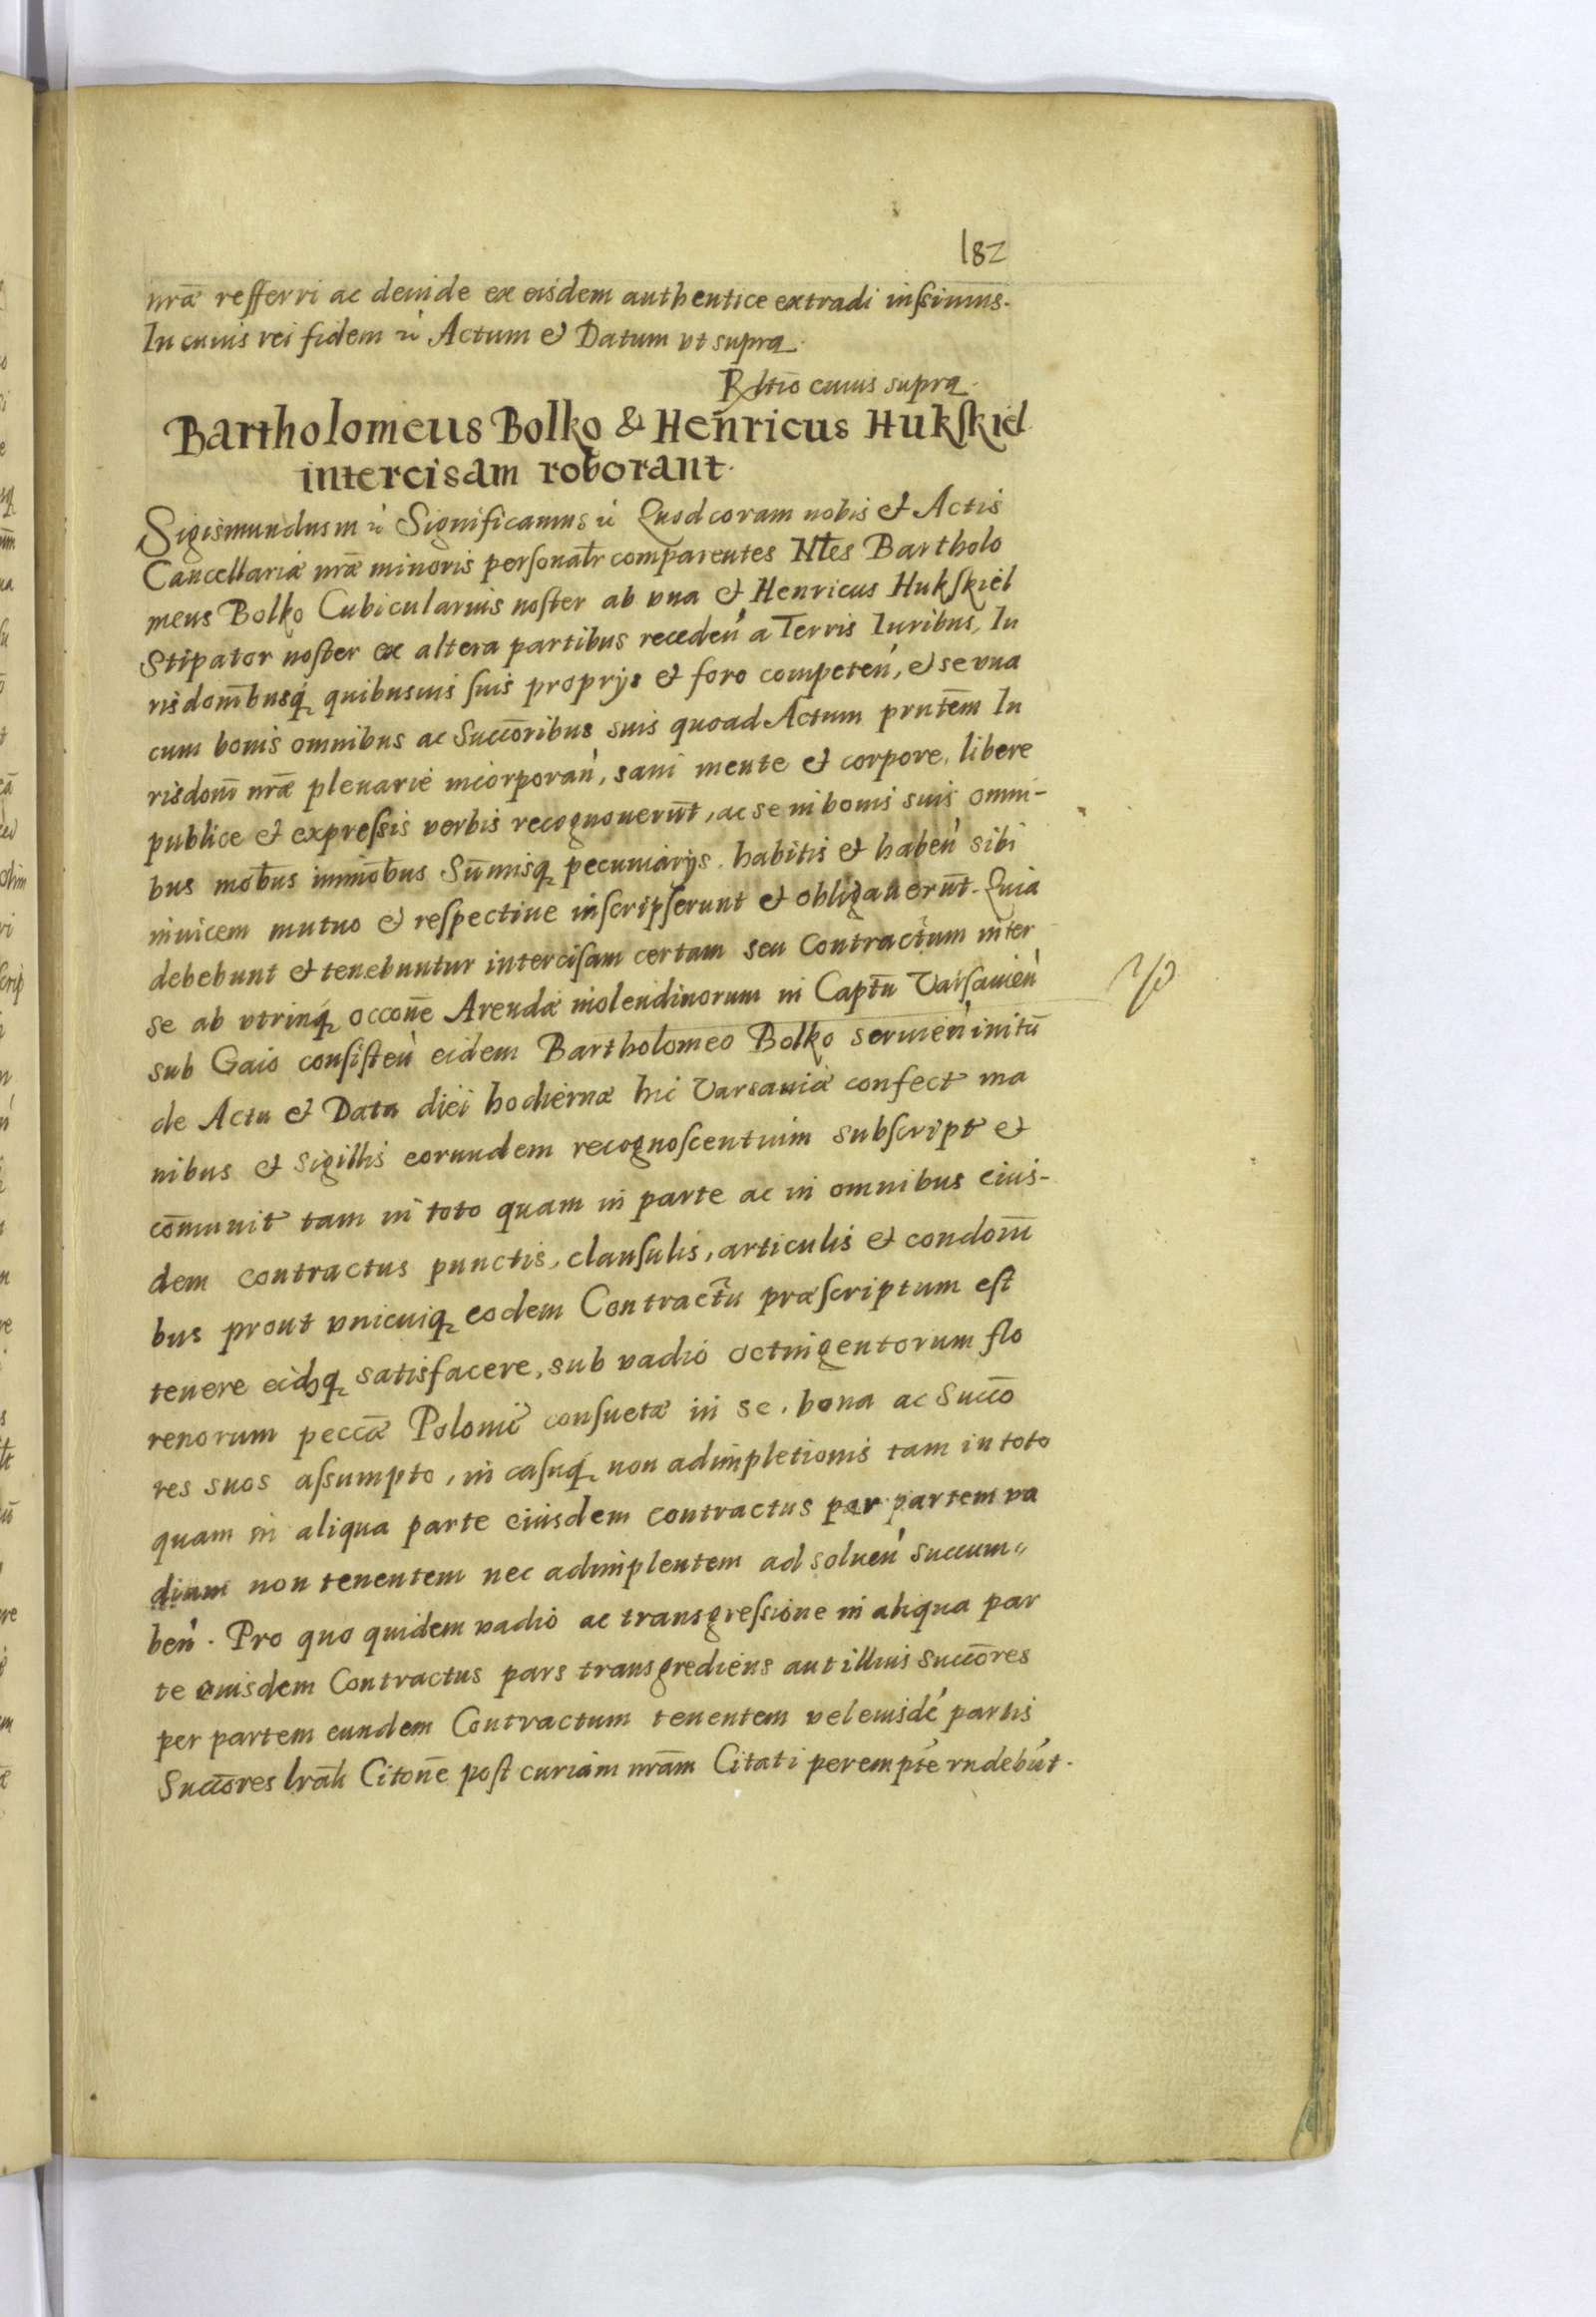 182
nrãe refferri ac deinde ex eisdem authentice extradi iussimus.
In cuius rei fidem etc Actum et Datum vt supra.
Rltio cuius supra.
Bartholomeus Bolko & Henricus Hukskiel
intercisam roborant.
Sigismundus III etc Significamus etc Quod coram nobis et Actis
Cancellariæ nrãe minoris personalr comparentes Nles Bartholo
meus Bolko Cubicularius noster ab vna et Henricus Hukskiel
Stipator noster ex altera partibus receden̍ a Terris Iuribus, Iu
risdoñibusq́ quibusuis suis proprijs et foro competen̍, et se vna
cum bonis omnibus ac Succõribus suis quoad Actum pñtem Iu
risdoñi nrãe plenarie incorporan̍, sani mente et corpore, libere
publice et expressis verbis recognouerũt, ac se in bonis suis omni-
bus mobus immobus Sum̃isq́ pecuniarijs habitis et haben̍ sibi
inuicem mutuo et respectiue inscripserunt et obligauerũt. Quia
debebunt et tenebuntur intercisam certam seu Contractum inter
se ab vtrinq́ occoñe Arendæ molendinorum in Captũ Varsauien̍
sub Gaio consisten̍ eidem Bartholomeo Bolko seruien̍ initũ
de Actu et Data diei hodiernæ hic Varsauiæ confect ma
nibus et sigillis eorundem recognoscentium subscript et
com̃unit tam in toto quam in parte ac in omnibus eius-
dem contractus punctis, clausulis, articulis et condoñi
bus prout vnicuiq́ eodem Contractu præscriptum est
tenere eidq́ satisfacere, sub vadio octingentorum flo
renorum peccãe Polonic consuetæ in se, bona ac Succõ
res suos assumpto, in casuq́ non adimpletionis tam in toto
quam in aliqua parte eiusdem contractus per partem va
dium non tenentem nec adimplentem ad soluen̍ succum-
ben̍. Pro quo quidem vadio ac transgressione in aliqua par
te eiusdem Contractus pars transgrediens aut illius succõres
per partem eundem Contractum tenentem vel eiusdẽ partis
Succõres lrãli Citoñe post curiam nrãm Citati perempte rndebũt.